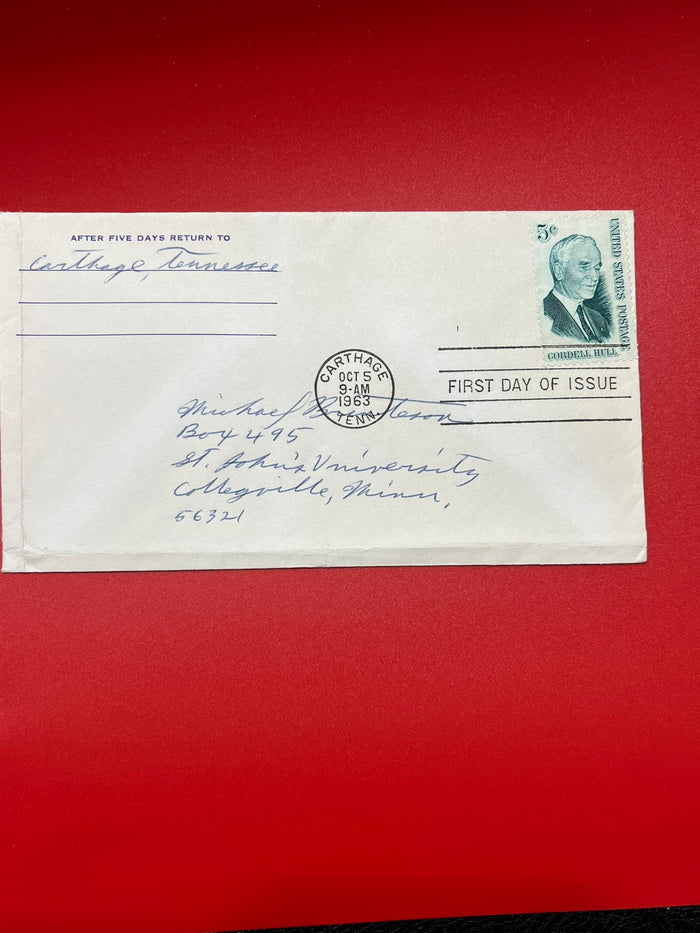 AFTER FIVE DAYS RETURN TO
Carthage, Tennessee
5¢
UNITED STATES POSTAGE
CORDELL HULL
CARTHAGE
OCT 5
9-AM
1963
TENN.
FIRST DAY OF ISSUE
Michael
Box 495
St. John's University
Collegville, Minn.
56321